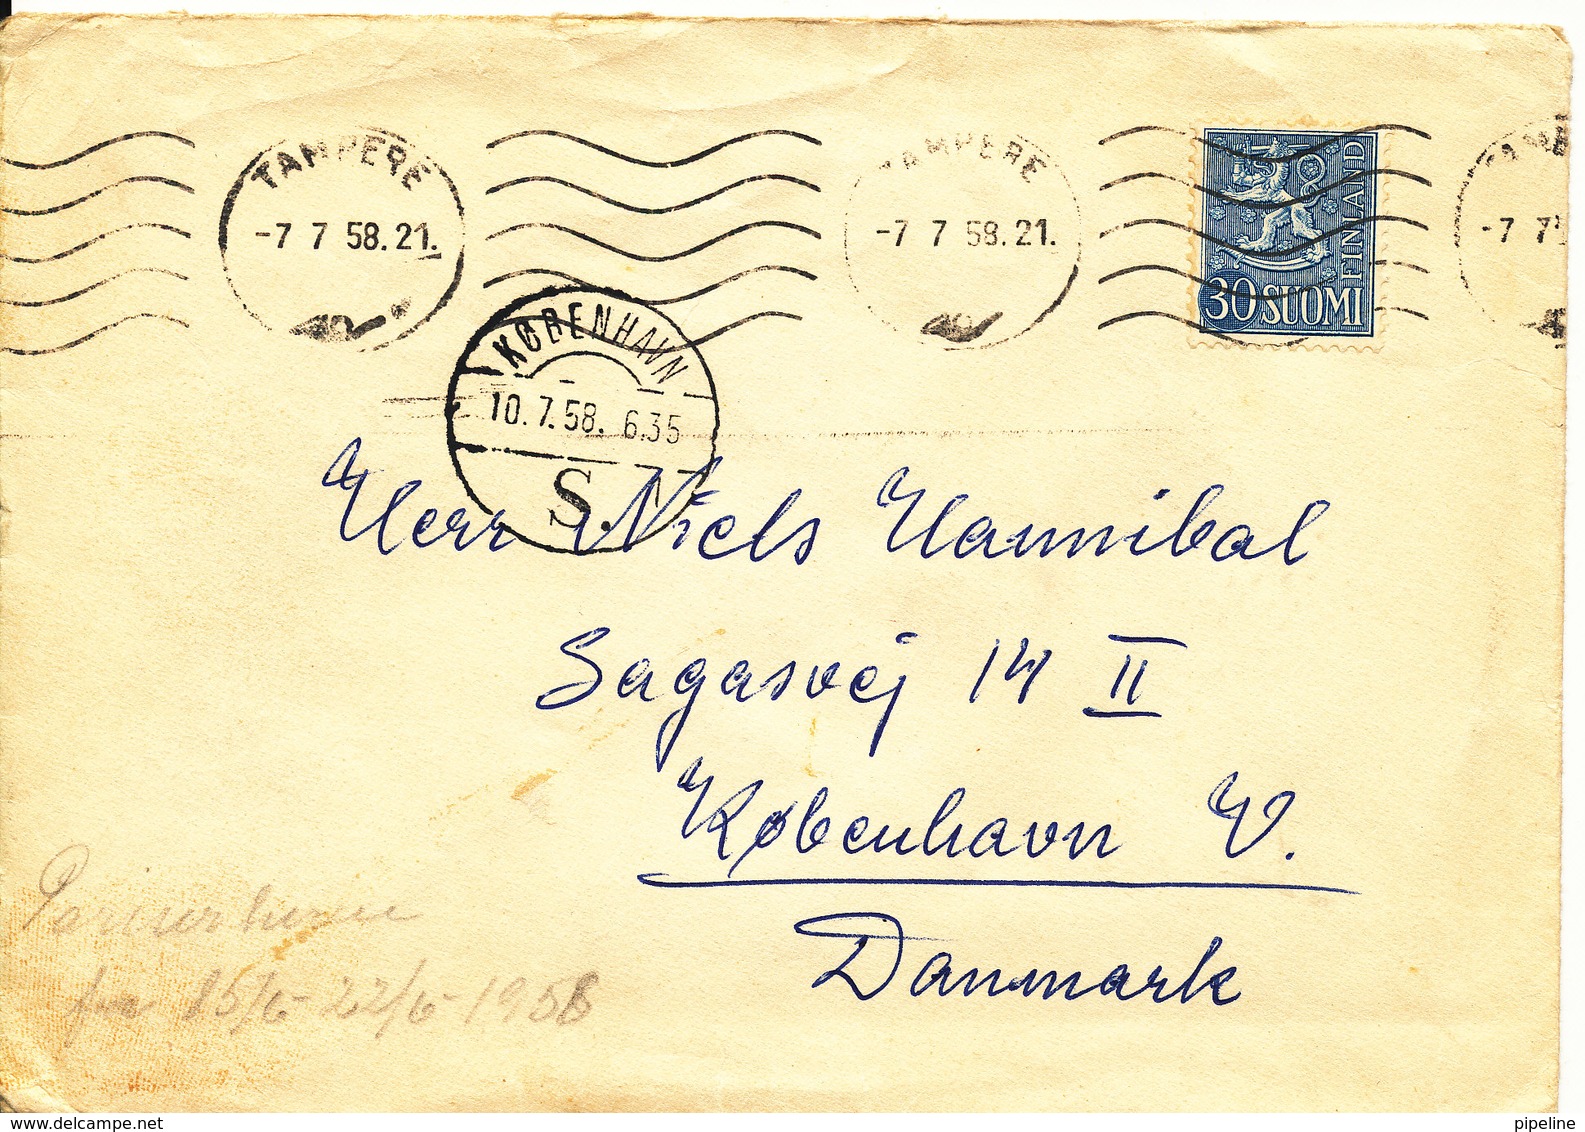 TAMPERE
-7 7 58.21.
TAMPERE
-7 7 58.21.
FINLAND
30 SUOMI
-7 7
KØBENHAVN
10.7.58. 6.35
S.
Herr Niels Hannibal
Sagasvej 14 II
København V.
Danmark
15/6-22/6-1958
www.delcampe.net
pipeline